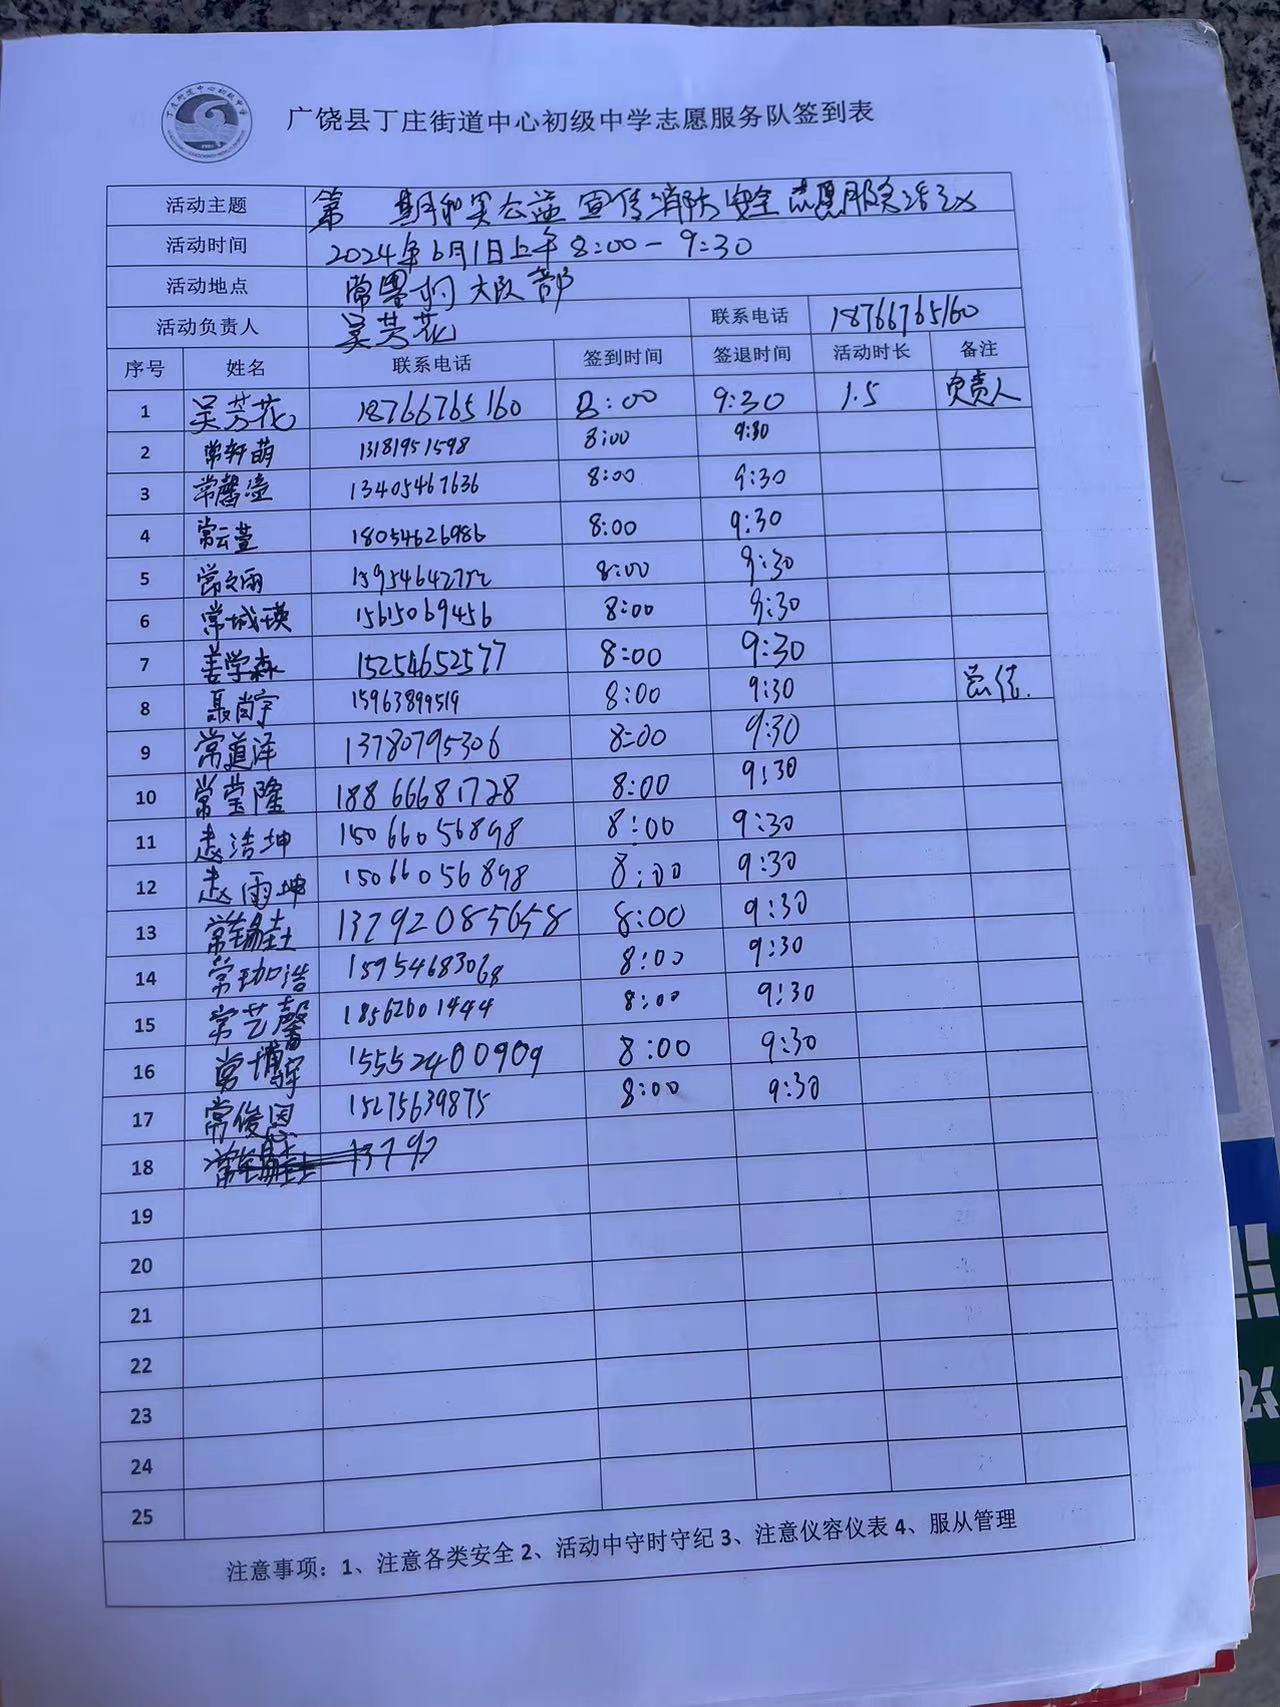 广饶县丁庄街道中心初级中学志愿服务队签到表
活动主题 第 期和美公益宣传消防安全志愿服务活动
活动时间 2024年6月1日上午8:00-9:30
活动地点 常署村大队部
活动负责人 吴芳花 联系电话 18766765160
序号 姓名 联系电话 签到时间 签退时间 活动时长 备注
1 吴芳花 18766765160 8:00 9:30 1.5 负责人
2 常轩萌 13181951598 8:00 9:30
3 常馨潼 13405467636 8:00 9:30
4 常云萱 18054626986 8:00 9:30
5 常文雨 8:00 9:30
6 常城瑛 15615069456 8:00 9:30
7 姜学森 15254652577 8:00 9:30
8 聂尚宇 15963899519 8:00 9:30 总结.
9 常道泽 13780795306 8:00 9:30
10 常莹隆 18866681728 8:00 9:30
11 赵浩坤 15066056898 8:00 9:30
12 赵雨坤 15066056898 8:00 9:30
13 13792085658 8:00 9:30
14 常劲浩 15954683068 8:00 9:30
15 常艺馨 18562001444 8:00 9:30
16 常博宇 15552400909 8:00 9:30
17 常俊恩 15275639875 8:00 9:30
18 13792
19
20
21
22
23
24
25
注意事项：1、注意各类安全 2、活动中守时守纪 3、注意仪容仪表 4、服从管理